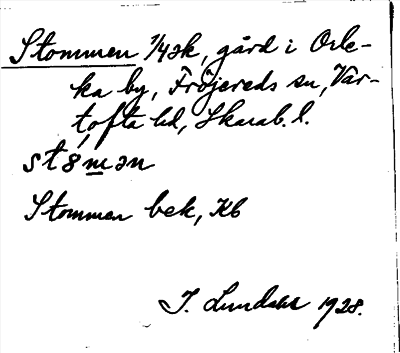 Stommen 1/4 sk, gård i Orle-
ka by, Fröjereds sn, Var-
tofta hd, Skarab. l.
st8mən
Stommen bek, Kb
J. Lundahl 1928.